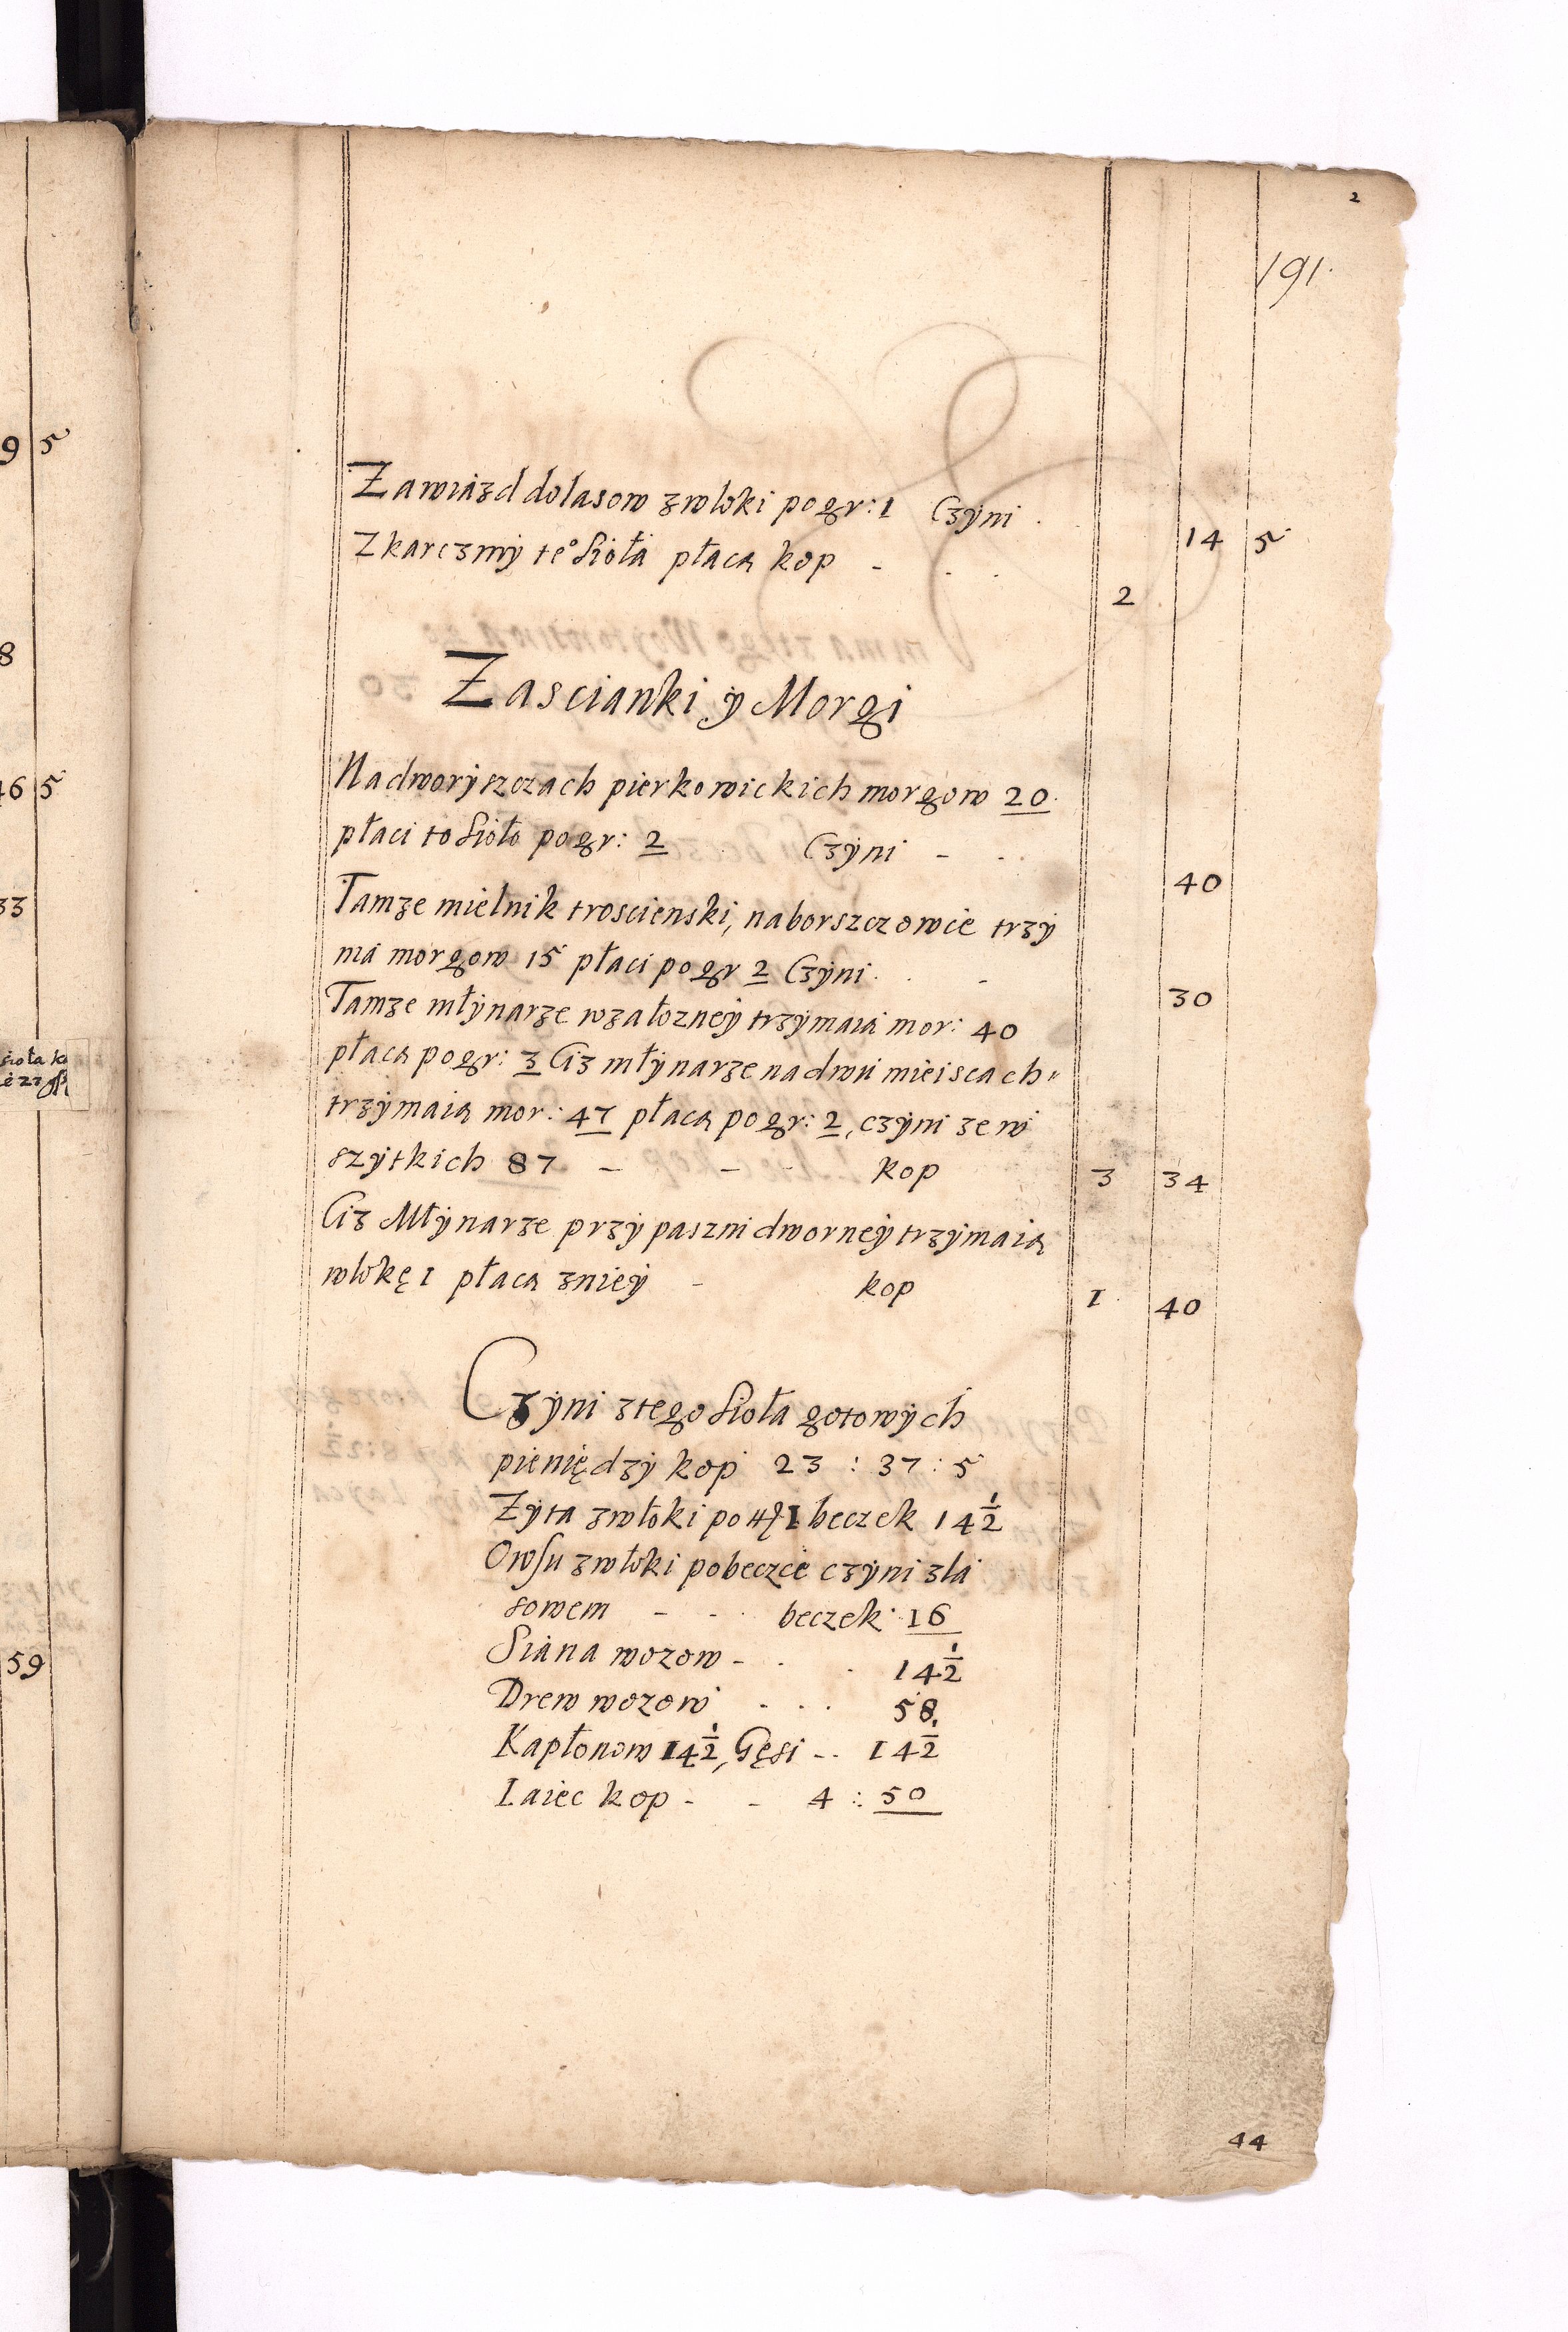 2
191.
Zawiazd dolasow zwloki pogr: 1 Czÿni . 14 5
Zkarczmÿ te° Sioła płacą kop - . . 2
Zascianki ÿ Morgi
Nadworÿszczach pierkowickich morgow 20.
płaci to Sioło pogr: 2 Czÿni - . . 40
Tamze mielnik troscienski, naborszczowcie trzÿ
ma morgow 15 płaci pogr 2 Czÿni . - 30
Tamze młÿnarze wzałoznëÿ trzÿmaią mor: 40
płacą pogr: 3 Ciz młÿnarze nadwu mieiscach"
trzÿmaią mor: 47 płacą pogr: 2, czÿni zew
szÿtkich 87 - - - kop 3 34
Ciz Młÿnarze przÿ paszni dwornëÿ trzÿmaią
wlokę 1 płacą zniëÿ - kop 1 40
Czÿni ztego Sioła gotowÿch
pieniędzÿ kop 23 : 37 : 5
Zÿta zwłoki po 1 beczek 14 1/2
Owsu zwłoki pobeczcë czÿni zla
sowem - - beczek 16
Siana wozow - . . 14 1/2
Drew wozow . . . 58.
Kapłonow 14 1/2, Gęsi - . 14 1/2
Iaiec kop - - 4 : 50
44
9 5
8
46 5
33
sioła k
59